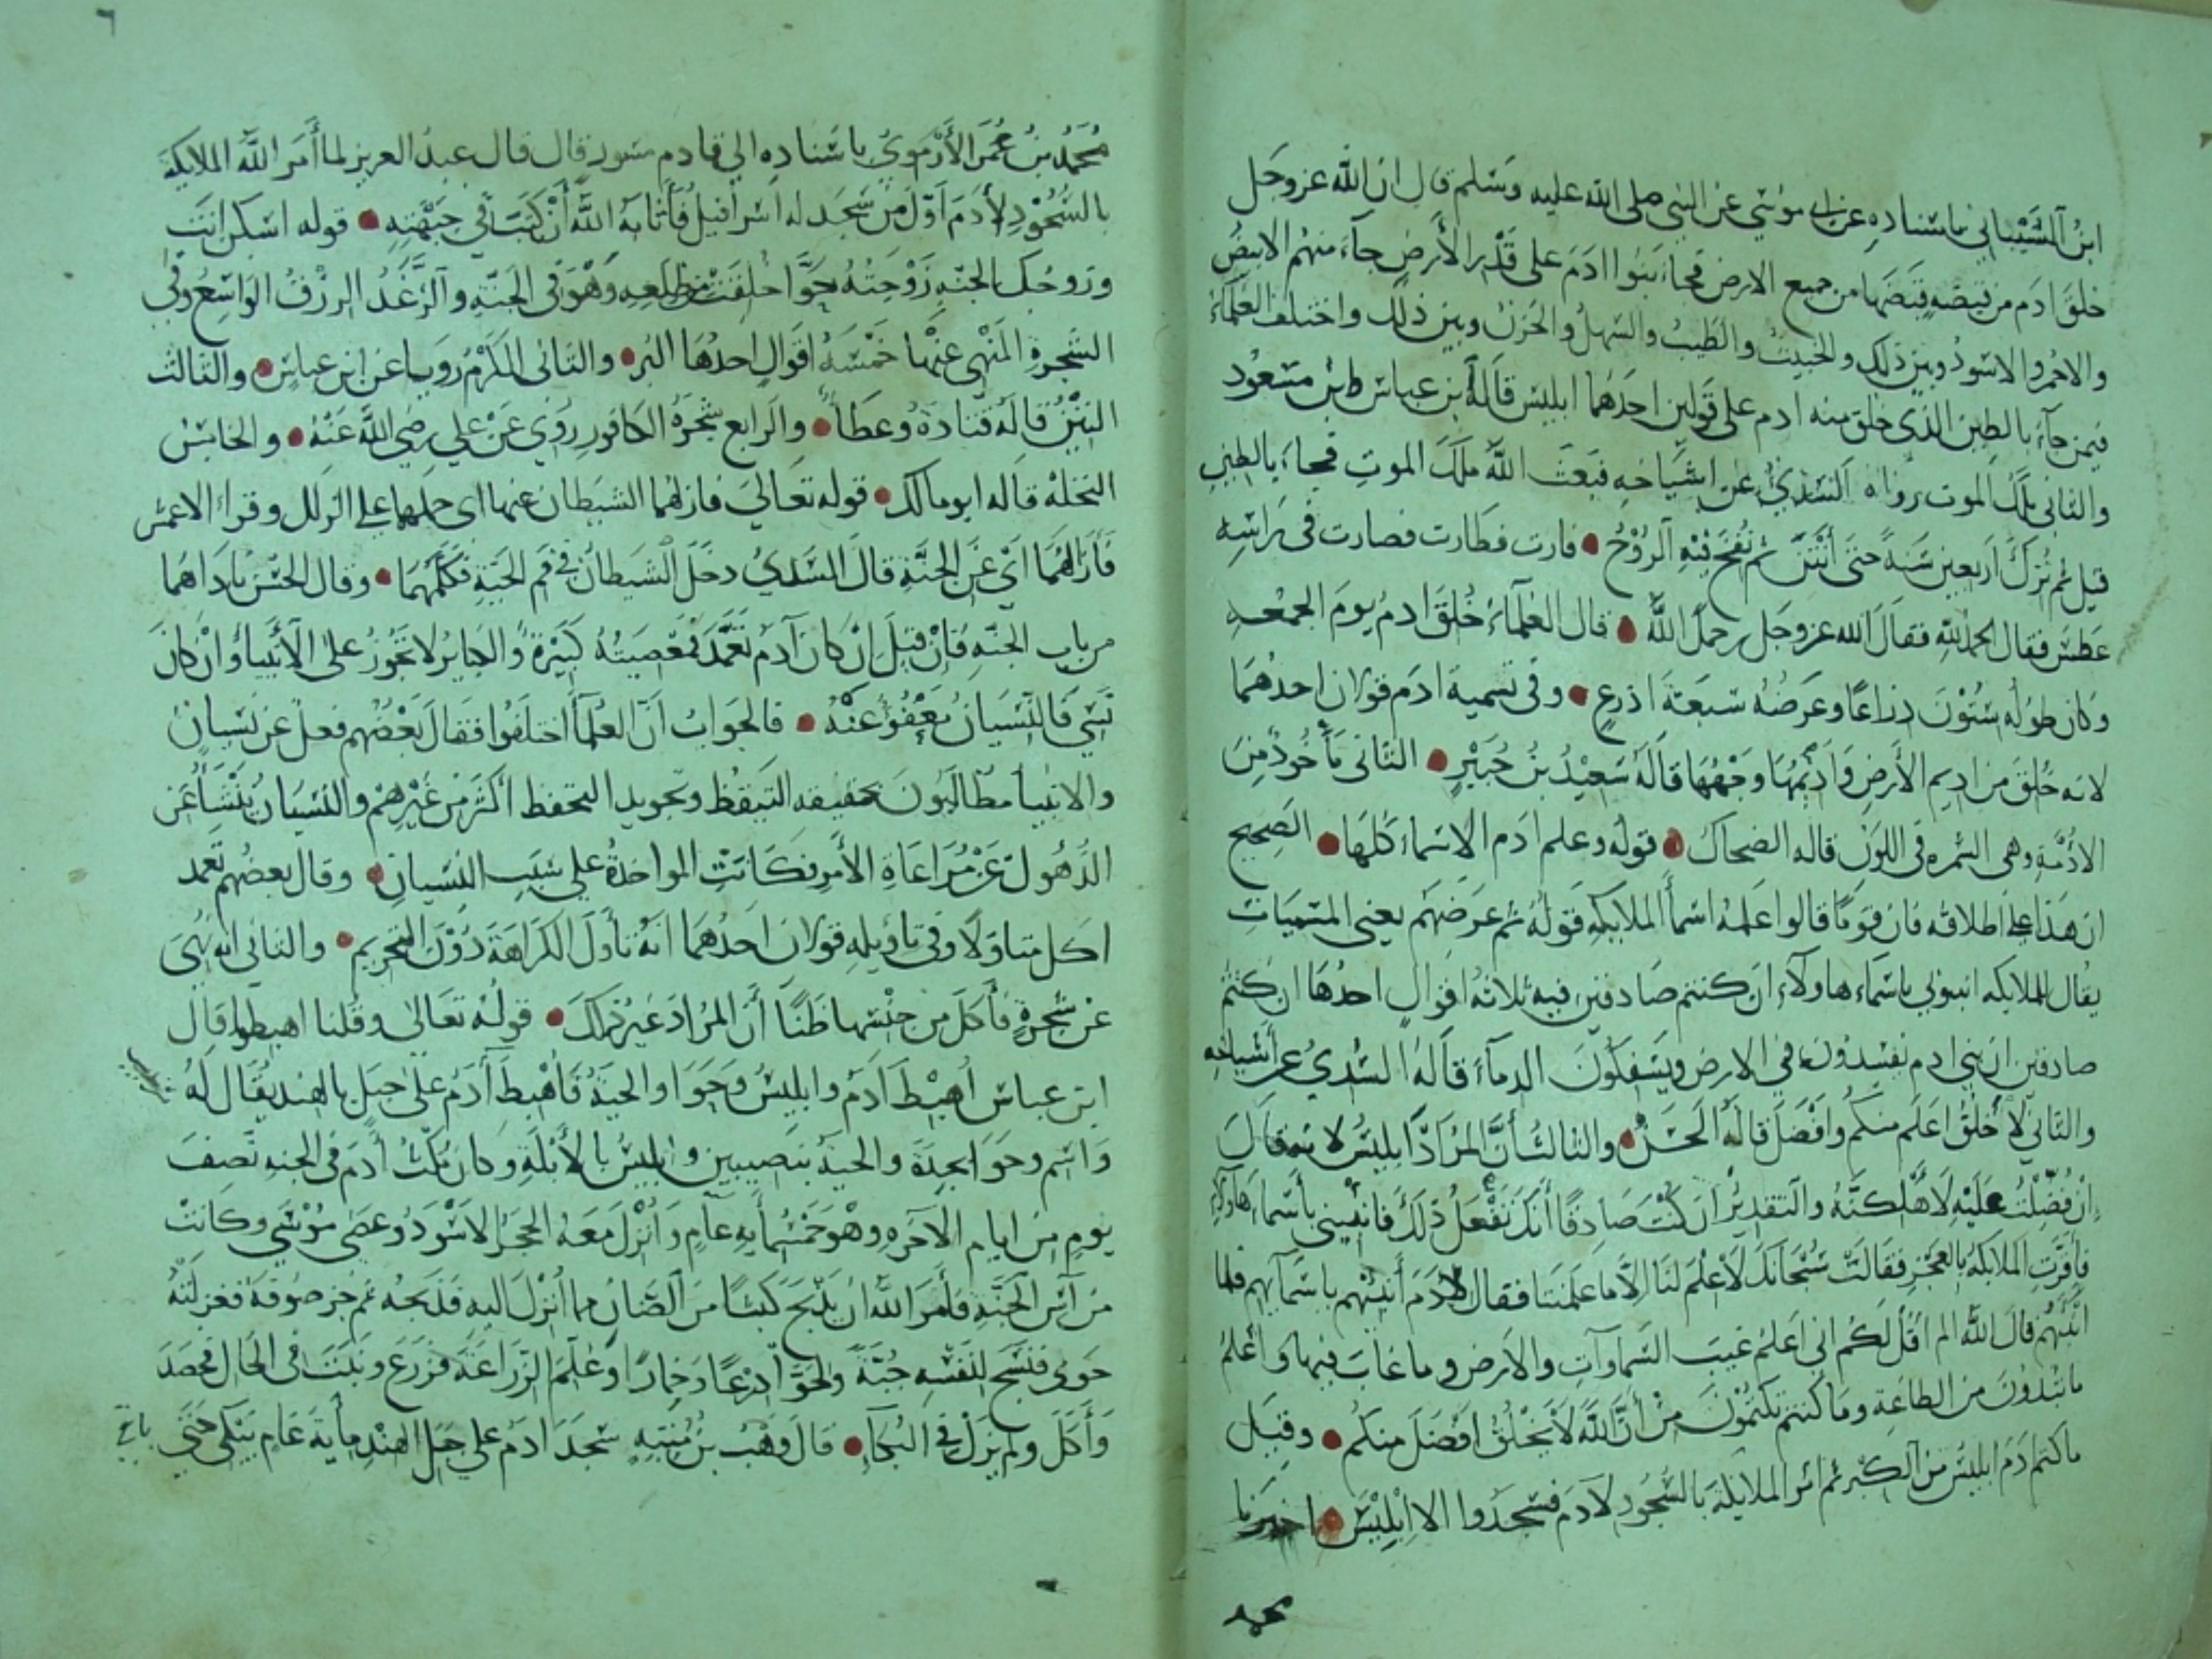 ابنُ الشَّيْبَاني باسناده عن ابي موسى عن النبي صلى الله عليه وسلم قال ان الله عز وجل
خلق ادم من قبضه قبضها من جميع الارض فجاء بنوا ادم على قدر الأرض جاء منهم الابيض
والاحمر والاسود وبين ذلك والخبيث والطيب والسهل والحزن وبين ذلك واختلف العلماء
فيمن جاء بالطين الذي خلق منه ادم على قولين احدهما ابليس قاله بن عباس وابن مسعود
والثاني ملك الموت رواه السدي عن اشياخه فبعث الله ملك الموت فجاء بالطين
قيل ثم ترك اربعين سنة حتى أنتن ثم نفخ فيه الروح • فطارت فصارت في راسه
عطس فقال الحمد لله فقال الله عز وجل رحمك الله • قال العلماء خلق ادم يوم الجمعه
وكان طوله ستون ذراعا وعرضه سبعة اذرع • وفي تسمية ادم قولان احدهما
لانه خلق من اديم الأرض واديمها وجهها قاله سعيد بن جبير • الثاني مأخوذ من
الادمة وهي السمره في اللون قاله الضحاك • قوله وعلم ادم الاسماء كلها • الصحيح
ان هذا على اطلاقه فان قوما قالوا علمه اسما الملايكه قوله ثم عرضهم يعني المسميات
يقال للملايكه انبوني باسماء هاولاء ان كنتم صادقين فيه ثلاثه اقوال احدها ان كنتم
صادقين ان بني ادم يفسدون في الارض ويسفكون الدماء قاله السدي عن أشياخه
والثاني لا أخلق اعلم منكم وافضل قاله الحسن • والثالث أن المراد ابليس لانه قال
ان فضلت عليه لاهلكنه والتقدير ان كنت صادقا أنك تفعل ذلك فانبيني بأسماء هاولاء
فأقرت الملايكة بالعجز فقالت سبحانك لا علم لنا الا ما علمتنا فقال لادم أنبئهم باسمآيهم فلما
انبئهم قال الله الم اقل لكم اني اعلم غيب السماوات والأرض وما غاب فيها واعلم
ما تبدون من الطاعة وما كنتم تكتمون من أن الله لا يخلق افضل منكم • وقيل
ما كتم ابليس من الكبر ثم امر الملايكة بالسجود لادم فسجدوا الا ابليس • اخبرنا
محمد
٦
محمد بن عمر الأرموي باسناده الي قال قال عبد العزيز لما أمر الله الملايكة
بالسجود لأدم اول من سجد له اسرافيل فأثابه الله أن كتب في جبهته • قوله اسكن انت
وزوجك الجنه زوجته حوا خلقت من ضلعه وهو في الجنة والرغد الرزق الواسع وفي
الشجرة المنهي عنها خمسة اقوال احدها البر • والثاني الكرم رويا عن ابن عباس • والثالث
التين قاله قتادة وعطا • والرابع شجرة الكافور روي عن علي رضي الله عنه • والخامس
النخلة قاله ابو مالك • قوله تعالى فازلهما الشيطان عنها اى حملهما علي الزلل وقراء الاعمش
فأزالهما اي عن الجنة قال السدي دخل الشيطان في فم الحية فكلمهما • وقال الحسن ناداهما
من باب الجنه فان قيل ان كان آدم تعمد فمعصيته كبيرة والكبائر لا تجوز على الأنبياء وان كان
نسي فالنسيان معفو عنه • فالجواب ان العلما اختلفوا فقال بعضهم فعل عن نسيان
والانبيا مطالبون بحقيقه التيقظ وتجويد التحفظ اكثر من غيرهم والنسيان ينشأ عن
الذهول عن مراعاة الأمر فكانت المواخذة علي سبب النسيان • وقال بعضهم تعمد
اكل متاولا وفي تاويله قولان احدهما انه تأول الكراهة دون التحريم • والثاني انه نهي
عن شجرة فأكل من جنسها ظنا أن المراد غير ذلك • قوله تعالى وقلنا اهبطوا قال
ابن عباس اهبط ادم وابليس وحوا والحية فأهبط آدم على جبل بالهند يقال له
واسم وحوا بجدة والحية بنصيبين وابليس بالأبلة وكان مكث أدم في الجنه نصف
يوم من ايام الآخره وهو خمسمأيه عام وأنزل معه الحجر الاسود وعصى موسى وكانت
من آس الجنة فأمر الله ان يذبح كبشا من الضان مما أنزل اليه فذبحه ثم جز صوفه فغزلته
حوى فنسج لنفسه جبة ولحوا درعا وخمارا وعلم الزراعة فزرع ونبت في الحال فحصد
وأكل ولم يزل في البكاء • قال وهب بن منبه سجد ادم علي جبل الهند مأية عام يبكي حتي